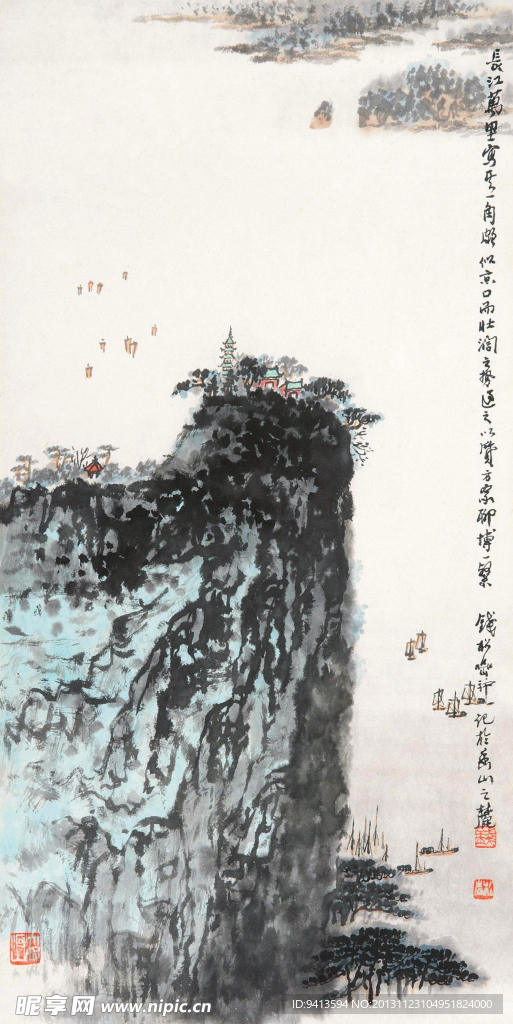 長江萬里寫其一角頗似京口而壯濶之勢過之以質方家聊博一粲 錢松嵒並記於萬山之麓
昵享网 www.nipic.cn
ID:9413594 NO:20131123104951824000